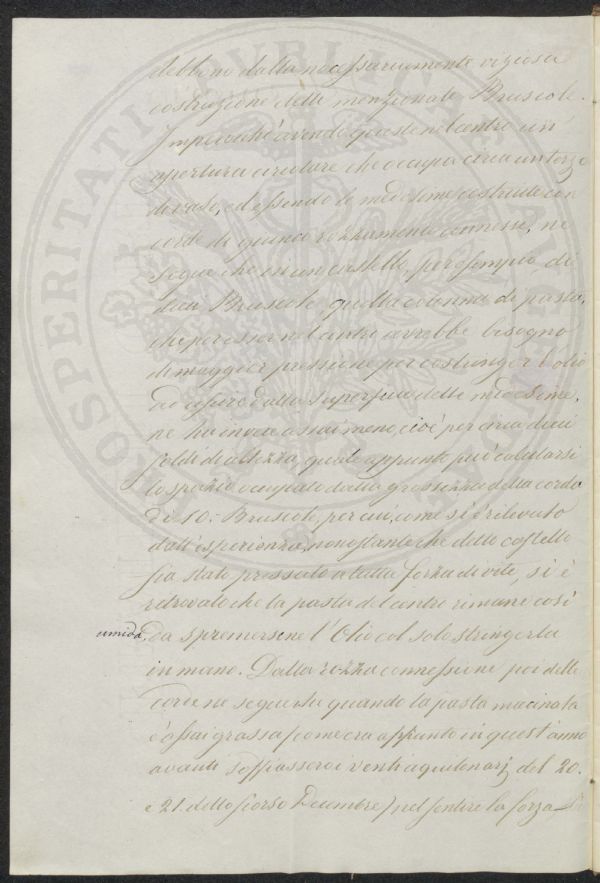 debbono dalla necessariamente viziosa
costruzione delle menzionate Bruscole.
Imperciocchè avendo queste nel centro un'
apertura circolare che occupa circa un terzo
di vaso, ed essendo le medesime costruite con
corde di giunco rozzamente connesse, ne
segue che in un castello, per esempio, di
dieci Bruscole quella colonna di pasta,
che per esser nel centro avrebbe bisogno
di maggior pressione per costringer l'olio
ad uscire dalla superficie delle medesime,
ne ha invece assai meno, cioè per circa dieci
soldi di altezza, quale appunto può calcolarsi
lo spazio occupato dalla grossezza della corda
di 10. Bruscole, per cui, come si è rilevato
dall'esperienza, nonostante che detto castello
sia stato pressato a tutta forza di vite, si è
ritrovato che la pasta del centro rimane così
umida, da spremersene l'Olio col solo stringerla
in mano. Dalla rozza connessione poi delle
corde ne segue che quando la pasta macinata
è assai grassa (come era appunto in quest'anno
avanti soffiassero i venti aquilonarj del 20.
e 21. dello scorso Decembre) nel sentire la forza